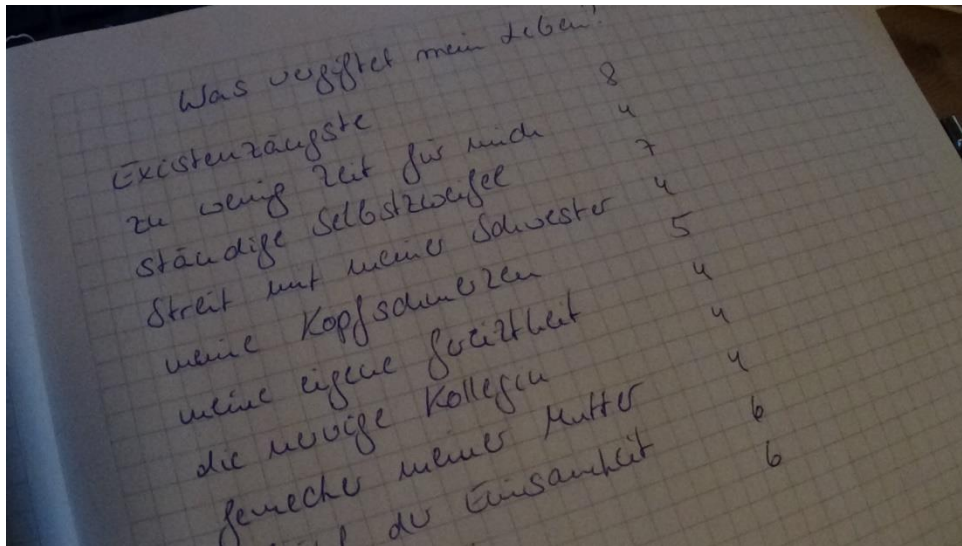 Was vergiftet mein Leben?
Existenzängste 8
zu wenig Zeit für mich 4
ständige Selbstzweifel 7
Streit mit meiner Schwester 4
meine Kopfschmerzen 5
meine eigene Gereiztheit 4
die nervige Kollegin 4
Gemecker meiner Mutter 4
der Einsamkeit 6
6